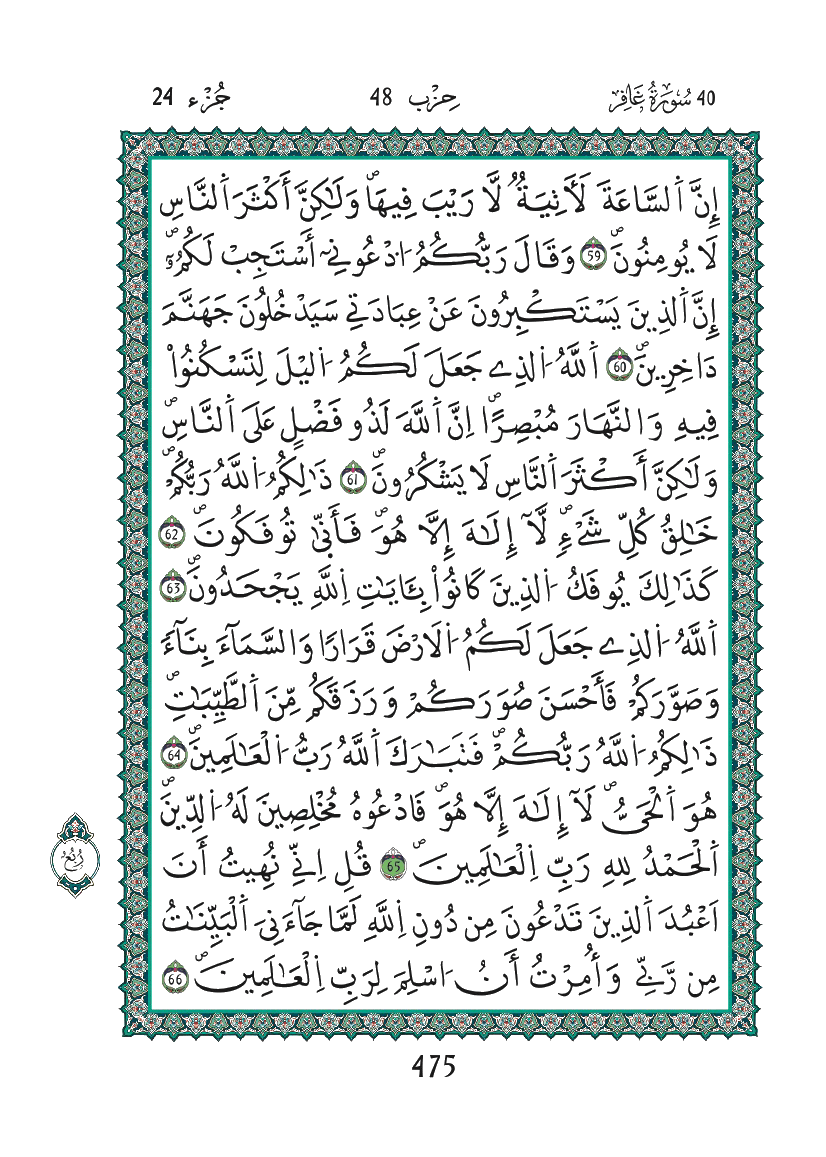 40 سُورَةُ غَافِر حِزْب 48 جُزْء 24
إِنَّ اَ۬لسَّاعَةَ لَأٓتِيَةٞ لَّا رَيْبَ فِيهَاۖ وَلَٰكِنَّ أَكْثَرَ اَ۬لنَّاسِ
لَا يُومِنُونَۖ 59 وَقَالَ رَبُّكُمُ اُ۟دْعُونِےٓ أَسْتَجِبْ لَكُمُۥٓۖ
إِنَّ اَ۬لذِينَ يَسْتَكْبِرُونَ عَنْ عِبَادَتِے سَيَدْخُلُونَ جَهَنَّمَ
دَاخِرِينَۖ 60 اَ۬للَّهُ اُ۬لذِے جَعَلَ لَكُمُ اُ۬ليْلَ لِتَسْكُنُواْ
فِيهِ وَالنَّهَارَ مُبْصِراًۖ اِنَّ اَ۬للَّهَ لَذُو فَضْلٍ عَلَى اَ۬لنَّاسِۖ
وَلَٰكِنَّ أَكْثَرَ اَ۬لنَّاسِ لَا يَشْكُرُونَۖ 61 ذَٰلِكُمُ اُ۬للَّهُ رَبُّكُمْۖ
خَٰلِقُ كُلِّ شَےْءٖۖ لَّآ إِلَٰهَ إِلَّا هُوَۖ فَأَنّ۪ىٰ تُوفَكُونَۖ 62
كَذَٰلِكَ يُوفَكُ اُ۬لذِينَ كَانُواْ بِـَٔايَٰتِ اِ۬للَّهِ يَجْحَدُونَۖ 63
اَ۬للَّهُ اُ۬لذِے جَعَلَ لَكُمُ اُ۬لَارْضَ قَرَاراٗ وَالسَّمَآءَ بِنَآءٗ
وَصَوَّرَكُمْ فَأَحْسَنَ صُوَرَكُمْ وَرَزَقَكُم مِّنَ اَ۬لطَّيِّبَٰتِۖ
ذَٰلِكُمُ اُ۬للَّهُ رَبُّكُمْۖ فَتَبَٰرَكَ اَ۬للَّهُ رَبُّ اُ۬لْعَٰلَمِينَۖ 64
هُوَ اَ۬لْحَيُّۖ لَآ إِلَٰهَ إِلَّا هُوَۖ فَادْعُوهُ مُخْلِصِينَ لَهُ اُ۬لدِّينَۖ
اَ۬لْحَمْدُ لِلهِ رَبِّ اِ۬لْعَٰلَمِينَۖ 65 قُلِ اِنِّے نُهِيتُ أَنَ
اَعْبُدَ اَ۬لذِينَ تَدْعُونَ مِن دُونِ اِ۬للَّهِ لَمَّا جَآءَنِيَ اَ۬لْبَيِّنَٰتُ
مِن رَّبِّے وَأُمِرْتُ أَنُ ا۟سْلِمَ لِرَبِّ اِ۬لْعَٰلَمِينَۖ 66
رُبُع
475